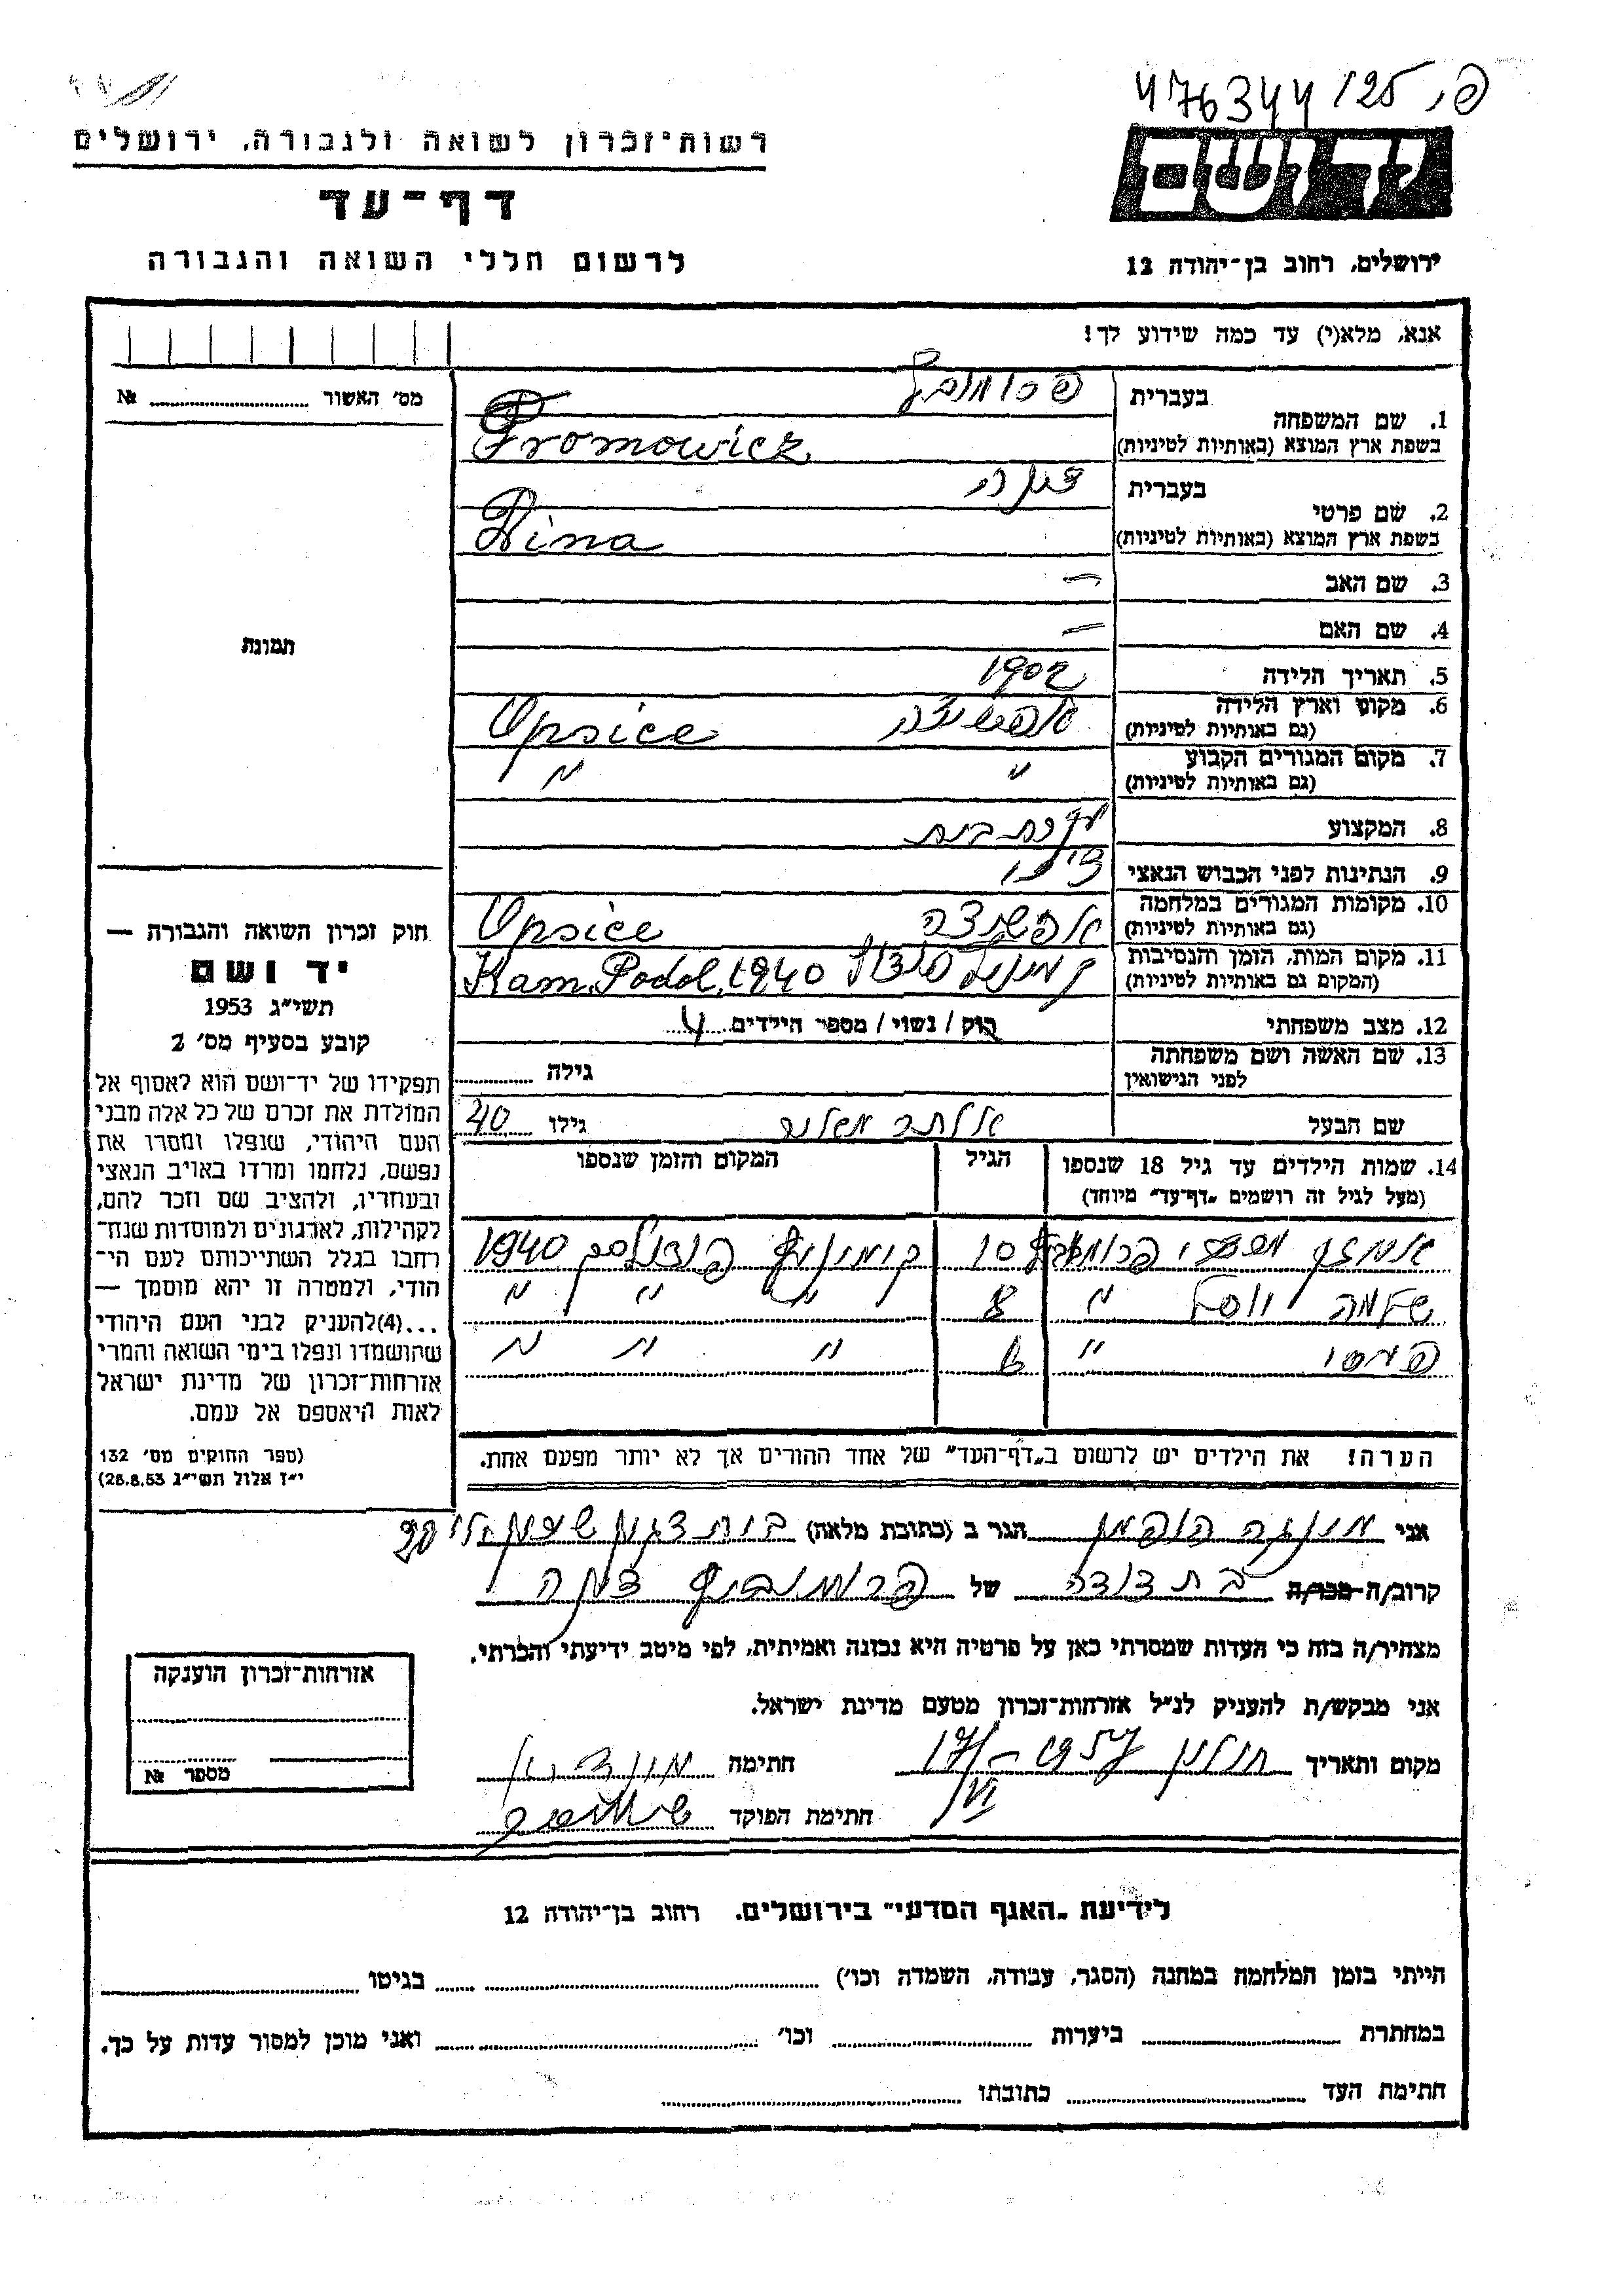 476344/125 פ.
רשות־זכרון לשואה ולגבורה, ירושלים
דף־עד
לרשום חללי השואה והגבורה
יד ושם
ירושלים, רחוב בן־יהודה 12
אנא, מלא(י) עד כמה שידוע לך!
מס׳ האשור № 
תמונה
1. שם המשפחה
בעברית
בשפת ארץ המוצא (באותיות לטיניות) Promowicz
2. שם פרטי
בעברית דינה
בשפת ארץ המוצא (באותיות לטיניות) Dina
3. שם האב –
4. שם האם –
5. תאריך הלידה 1902
6. מקום וארץ הלידה
(גם באותיות לטיניות) Opsice
7. מקום המגורים הקבוע
(גם באותיות לטיניות) " "
8. המקצוע עקרת בית
9. הנתינות לפני הכבוש הנאצי
10. מקומות המגורים במלחמה
(גם באותיות לטיניות) Opsice
11. מקום המות, הזמן והנסיבות
(המקום גם באותיות לטיניות) Kam. Podol. 1940
12. מצב משפחתי רוק / נשוי / מספר הילדים 4
13. שם האשה ושם משפחתה
לפני הנישואין גילה
שם הבעל גילו 40
14. שמות הילדים עד גיל 18 שנספו הגיל המקום והזמן שנספו
(מעל לגיל זה רושמים „דף־עד״ מיוחד)
10 1940
שלמה " 8 " " "
" 6 " " "
הערה! את הילדים יש לרשום ב„דף־העד״ של אחד ההורים אך לא יותר מפעם אחת.
חוק זכרון השואה והגבורה —
יד ושם
תשי״ג 1953
קובע בסעיף מס׳ 2
תפקידו של יד־ושם הוא לאסוף אל
המולדת את זכרם של כל אלה מבני
העם היהודי, שנפלו ומסרו את
נפשם, נלחמו ומרדו באויב הנאצי
ובעוזריו, ולהציב שם וזכר להם,
לקהילות, לארגונים ולמוסדות שנח־
רחבו בגלל השתייכותם לעם הי־
הודי, ולמטרה זו יהא מוסמך —
...(4)להעניק לבני העם היהודי
שהושמדו ונפלו בימי השואה והמרי
אזרחות־זכרון של מדינת ישראל
לאות היאספם אל עמם.
(ספר החוקים מס׳ 132
י״ז אלול תשי״ג 28.8.53)
אני הופמן הגר ב (כתובת מלאה) בית דגן
קרוב/ה מכר/ה בת דודה של דינה
מצהיר/ה בזה כי העדות שמסרתי כאן על פרטיה היא נכונה ואמיתית, לפי מיטב ידיעתי והכרתי.
אני מבקש/ת להעניק לנ״ל אזרחות־זכרון מטעם מדינת ישראל.
מקום ותאריך חולון 17/VI – 1957 חתימה
חתימת הפוקד
אזרחות־זכרון הוענקה
מספר №
לידיעת „האגף המדעי״ בירושלים, רחוב בן־יהודה 12
הייתי בזמן המלחמה במחנה (הסגר, עבודה, השמדה וכו׳) בגיטו
במחתרת ביערות וכו׳ ואני מוכן למסור עדות על כך.
חתימת העד כתובתו